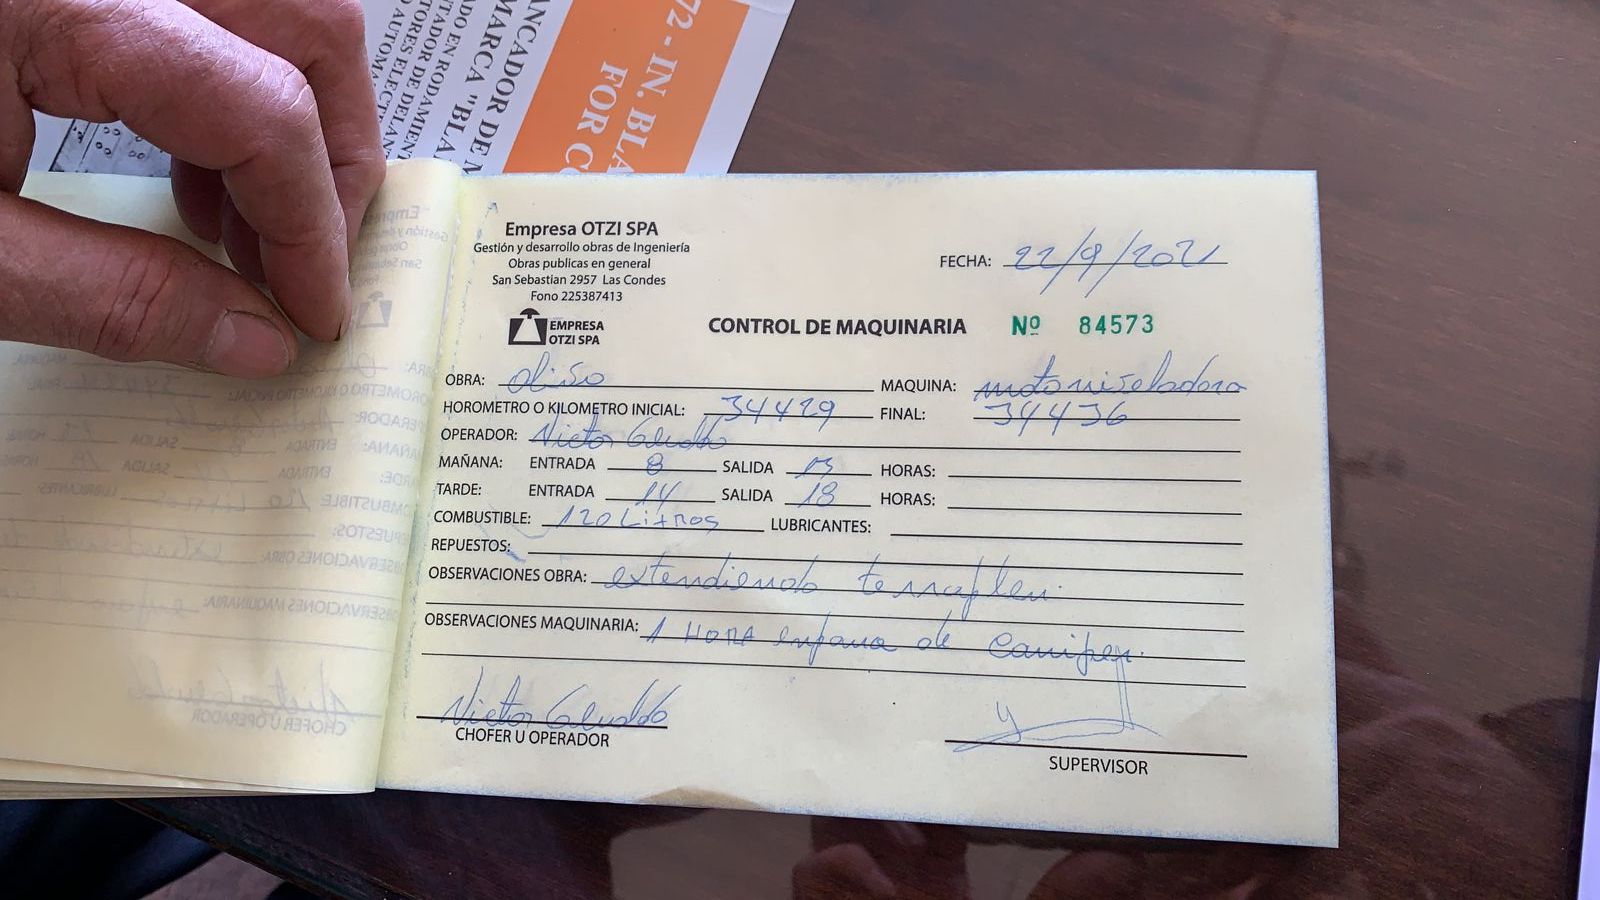 72 - IN. BLA
FOR C
ANCADOR DE M
MARCA "BLA
Empresa OTZI SPA
Gestión y desarrollo obras de Ingeniería
Obras publicas en general
San Sebastian 2957 Las Condes
Fono 225387413
EMPRESA
OTZI SPA
FECHA: 22/9/2021
CONTROL DE MAQUINARIA Nº 84573
OBRA: MAQUINA: motoniveladora
HOROMETRO O KILOMETRO INICIAL: 34429 FINAL: 34436
OPERADOR: Victor
MAÑANA: ENTRADA 8 SALIDA 13 HORAS:
TARDE: ENTRADA 14 SALIDA 18 HORAS:
COMBUSTIBLE: 120 Litros LUBRICANTES:
REPUESTOS:
OBSERVACIONES OBRA: extendiendo terraplen.
OBSERVACIONES MAQUINARIA: 1 HORA de
Victor
CHOFER U OPERADOR
SUPERVISOR